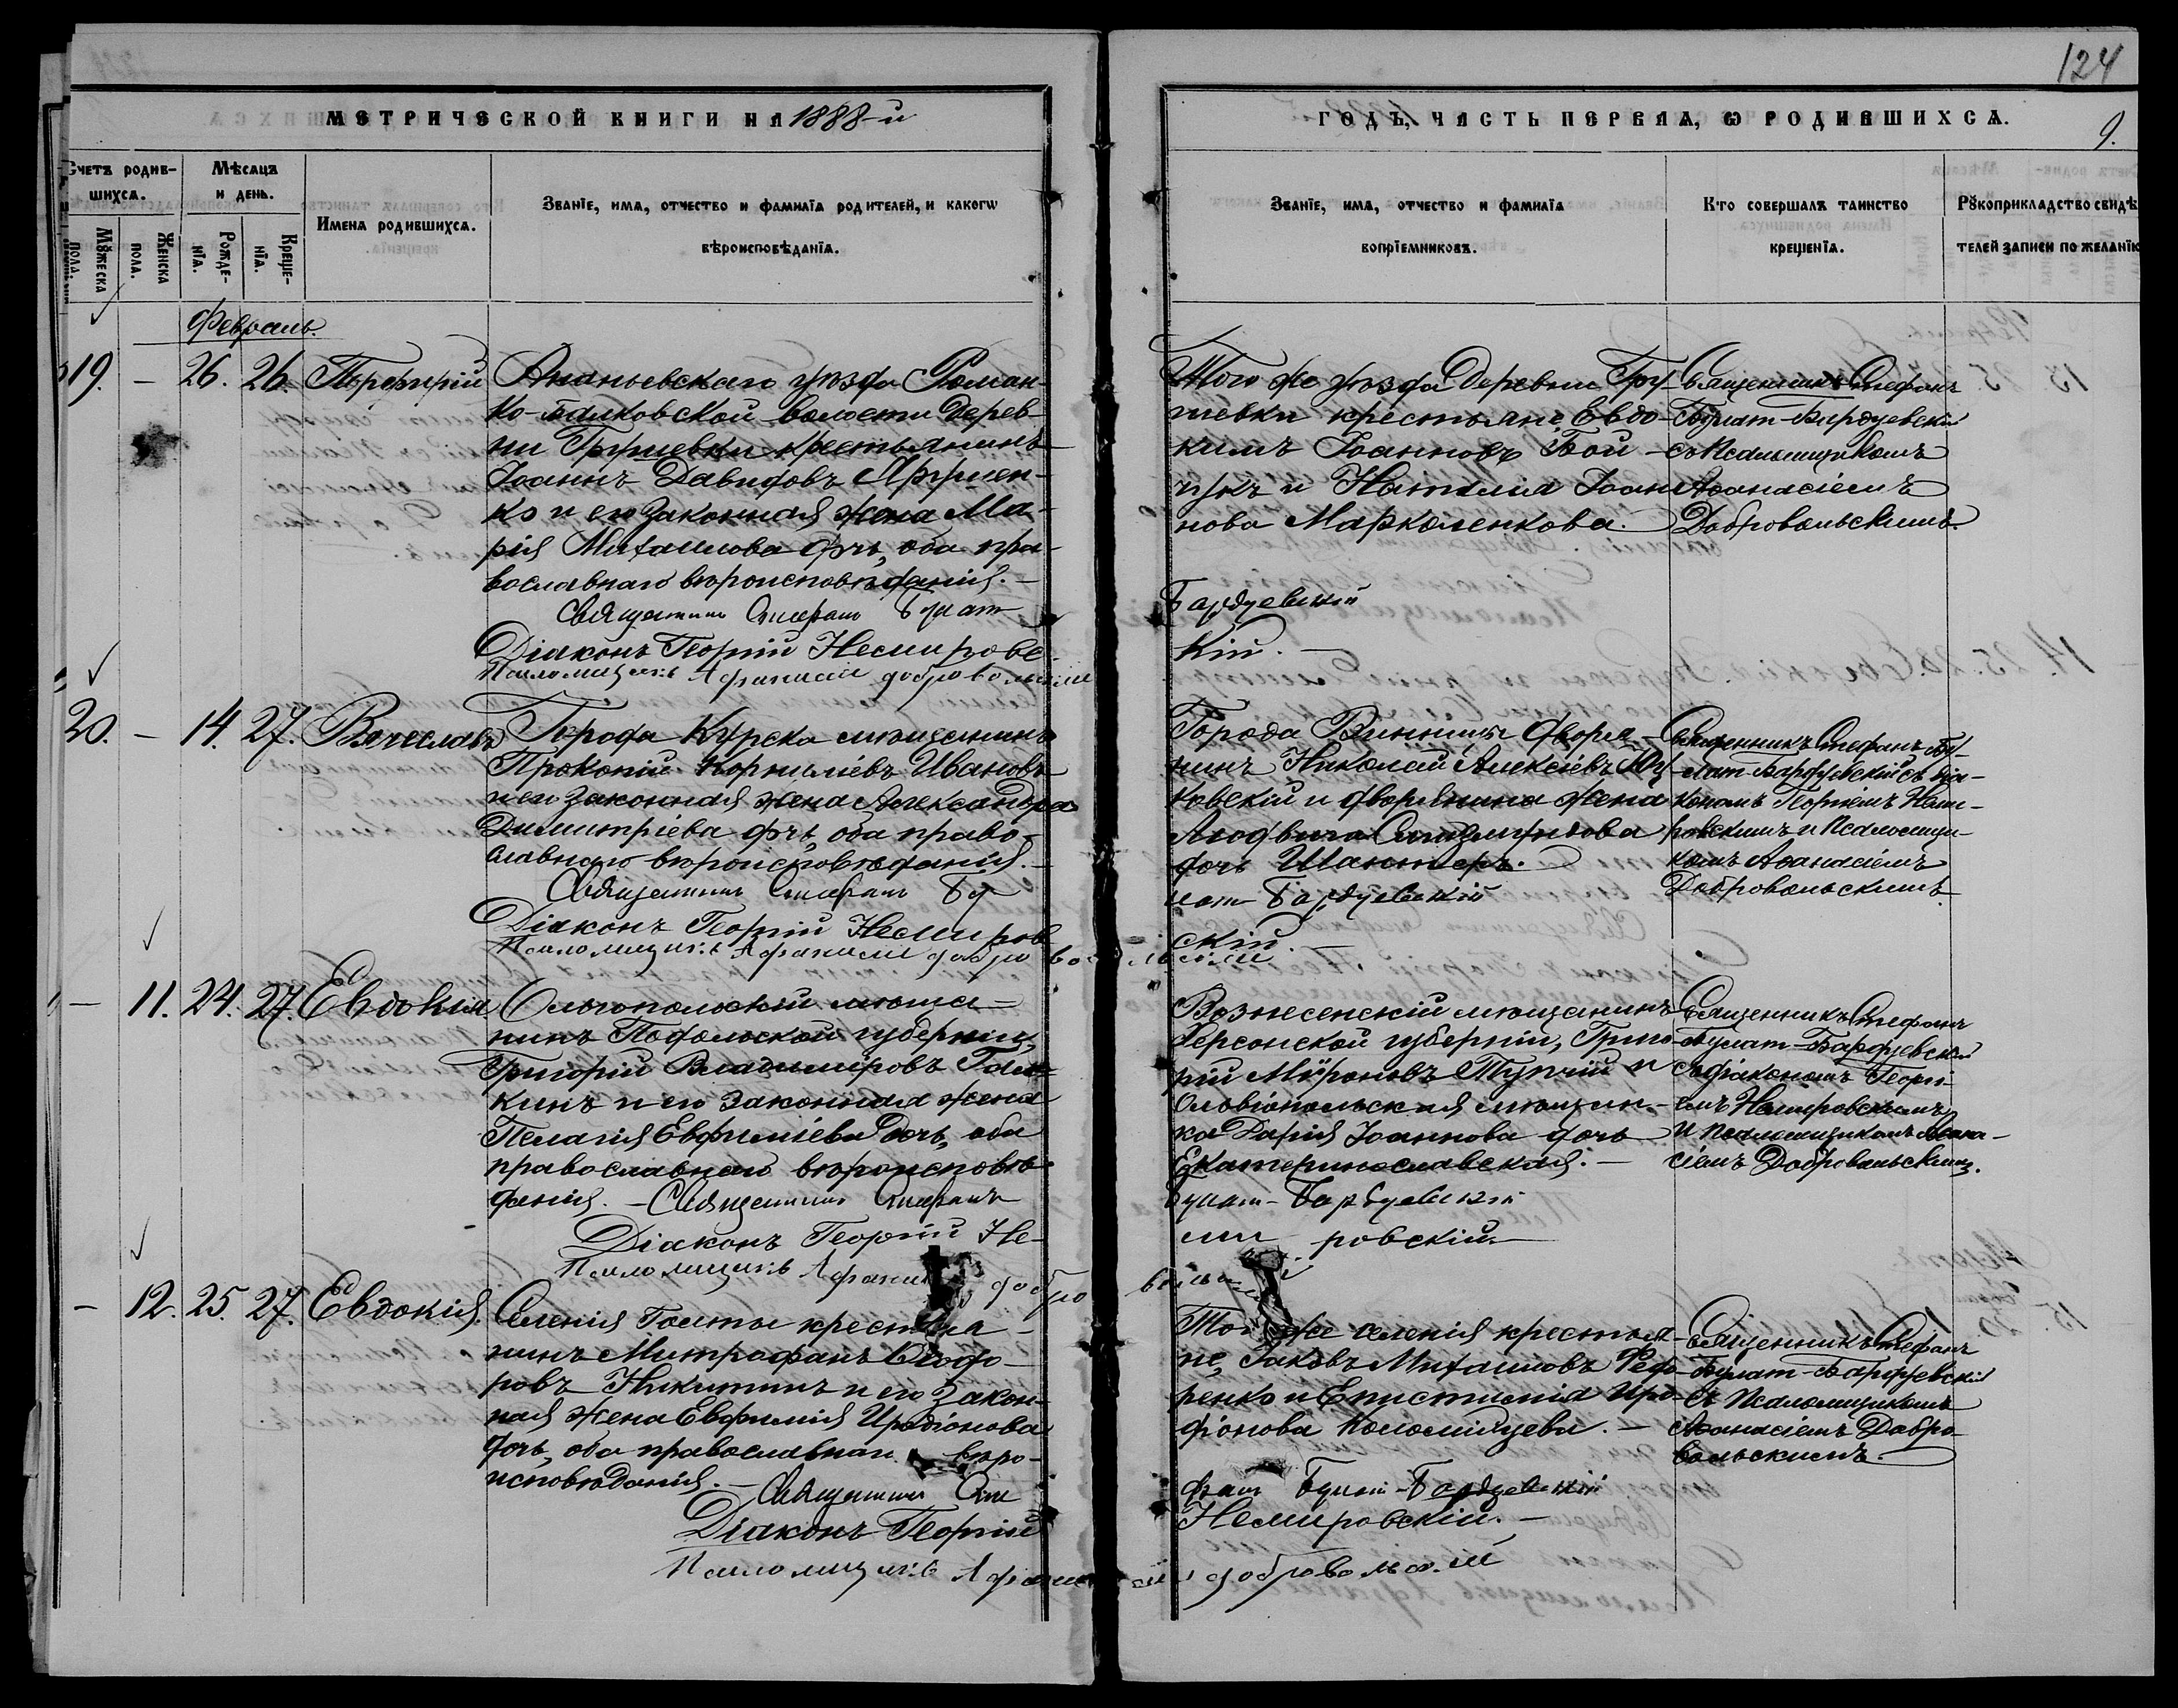 124
МЕТРИЧЕСКОЙ КНИГИ НА 1888-й
ГОДЪ, ЧАСТЬ ПЕРВАЯ, Ѡ РОДИВШИХСЯ.
9.
Счетъ родив-
шихся.
Мѣсяцъ
и день.
Имена родившихся.
Званїе, имя, отчество и фамилїя родителей, и какогѡ
вѣроисповѣданїя.
Мꙋжеска
пола.
Женска
пола.
Рожде-
нїя.
Креще-
нїя.
Званїе, имя, отчество и фамилїя
воспрїемниковъ.
Кто совершалъ таинство
крещенїя.
Рꙋкоприкладство свидѣ
телей записи по желанїю
Февраль.
19. — 26. 26. Порфирій
Ананьевскаго уѣзда Роман-
ко-Балковской волости Дерев-
ни Грушевки крестьянинъ
Іоаннъ Давидовъ
ко и его законная жена Ма-
рія Михаилова дчь, оба пра-
вославнаго вѣроисповѣданія. —
Священникъ Стефанъ Булат
Діаконъ Георгій Немировс
Псаломщикъ Афанасій Добровольскій
Того же уѣзда Деревни Гру-
шевки крестьяне Евдо-
кимъ Іоанновъ Бой-
чукъ и Наталія Іоан
нова Маркоменкова.
Бардуевскій
кій. —
Священникъ Стефанъ
Булат-Бардуевскій
съ Псаломщикомъ
Аѳанасіемъ
Добровольскимъ.
20. — 14. 27. Вячеславъ
Города Курска мѣщанинъ
Прокопій Корниліевъ Ивановъ
и его законная жена Александра
Димитріева дчь, оба право-
славнаго вѣроисповѣданія. —
Священникъ Стефанъ Бу
Діаконъ Георгій Немиров
Псаломщикъ Афанасій Добровольскій
Города Винницы дворя-
нинъ Николай Алексіевъ
ковскій и дворянина жена
Людвига
дочь Шантеръ.
лат-Бардуевскій
скій. —
Священникъ Стефанъ Бу-
лат-Бардуевскій съ Діа-
кономъ Георгіемъ Неми-
ровскимъ и Псаломщи-
комъ Аѳанасіемъ
Добровольскимъ.
— 11. 24. 27. Евдокія
Ольгопольскій мѣща-
нинъ Подольской губерніи,
Григорій Владиміровъ
кинъ и его законная жена
Пелагія Евфиміева дочь, оба
православнаго вѣроисповѣ-
данія. — Священникъ Стефанъ
Діаконъ Георгій Не-
Псаломщикъ Афанасій Добро
Вознесенскій мѣщанинъ
Херсонской губерніи, Григо-
рій Мѵроновъ Тупчій и
Ольвіопольская мѣщан-
ка Дарія Іоаннова дочь
Екатеринославская. —
Булат-Бардуевскій
ми ровскій. —
Священникъ Стефанъ
Булат-Бардуевскій
съ Діакономъ Георгі-
емъ Немировскимъ
и псаломщикомъ Аѳана-
сіемъ Добровольскимъ.
— 12. 25. 27. Евдокія.
Селенія Голты крестьяна-
нинъ Митрофанъ Ѳеодо-
ровъ Никитинъ и его закон-
ная жена Евфимія Иродіонова
дочь, оба православнаго вѣро-
исповѣданія. — Священникъ Сте
Діаконъ Георгій
Псаломщикъ Афанасій Добровольскій
Того же селенія крестья-
не, Іаковъ Михаиловъ Федо-
ренко и Епистимія Иро-
діонова Коломійцева. —
фанъ Булат-Бардуевскій
Немировскій. —
Священникъ Стефанъ
Булат-Бардуевскій
съ Псаломщикомъ
Аѳанасіемъ Добро-
вольскимъ.